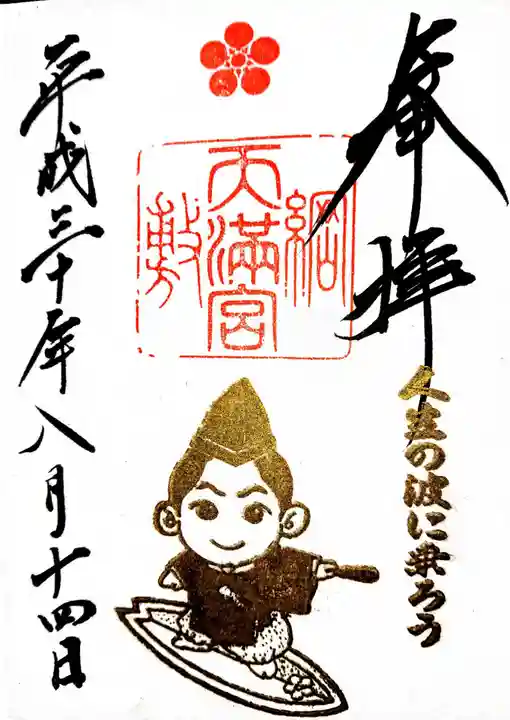 奉拝
人生の波に乗ろう
綱敷天満宮
平成三十年八月十四日